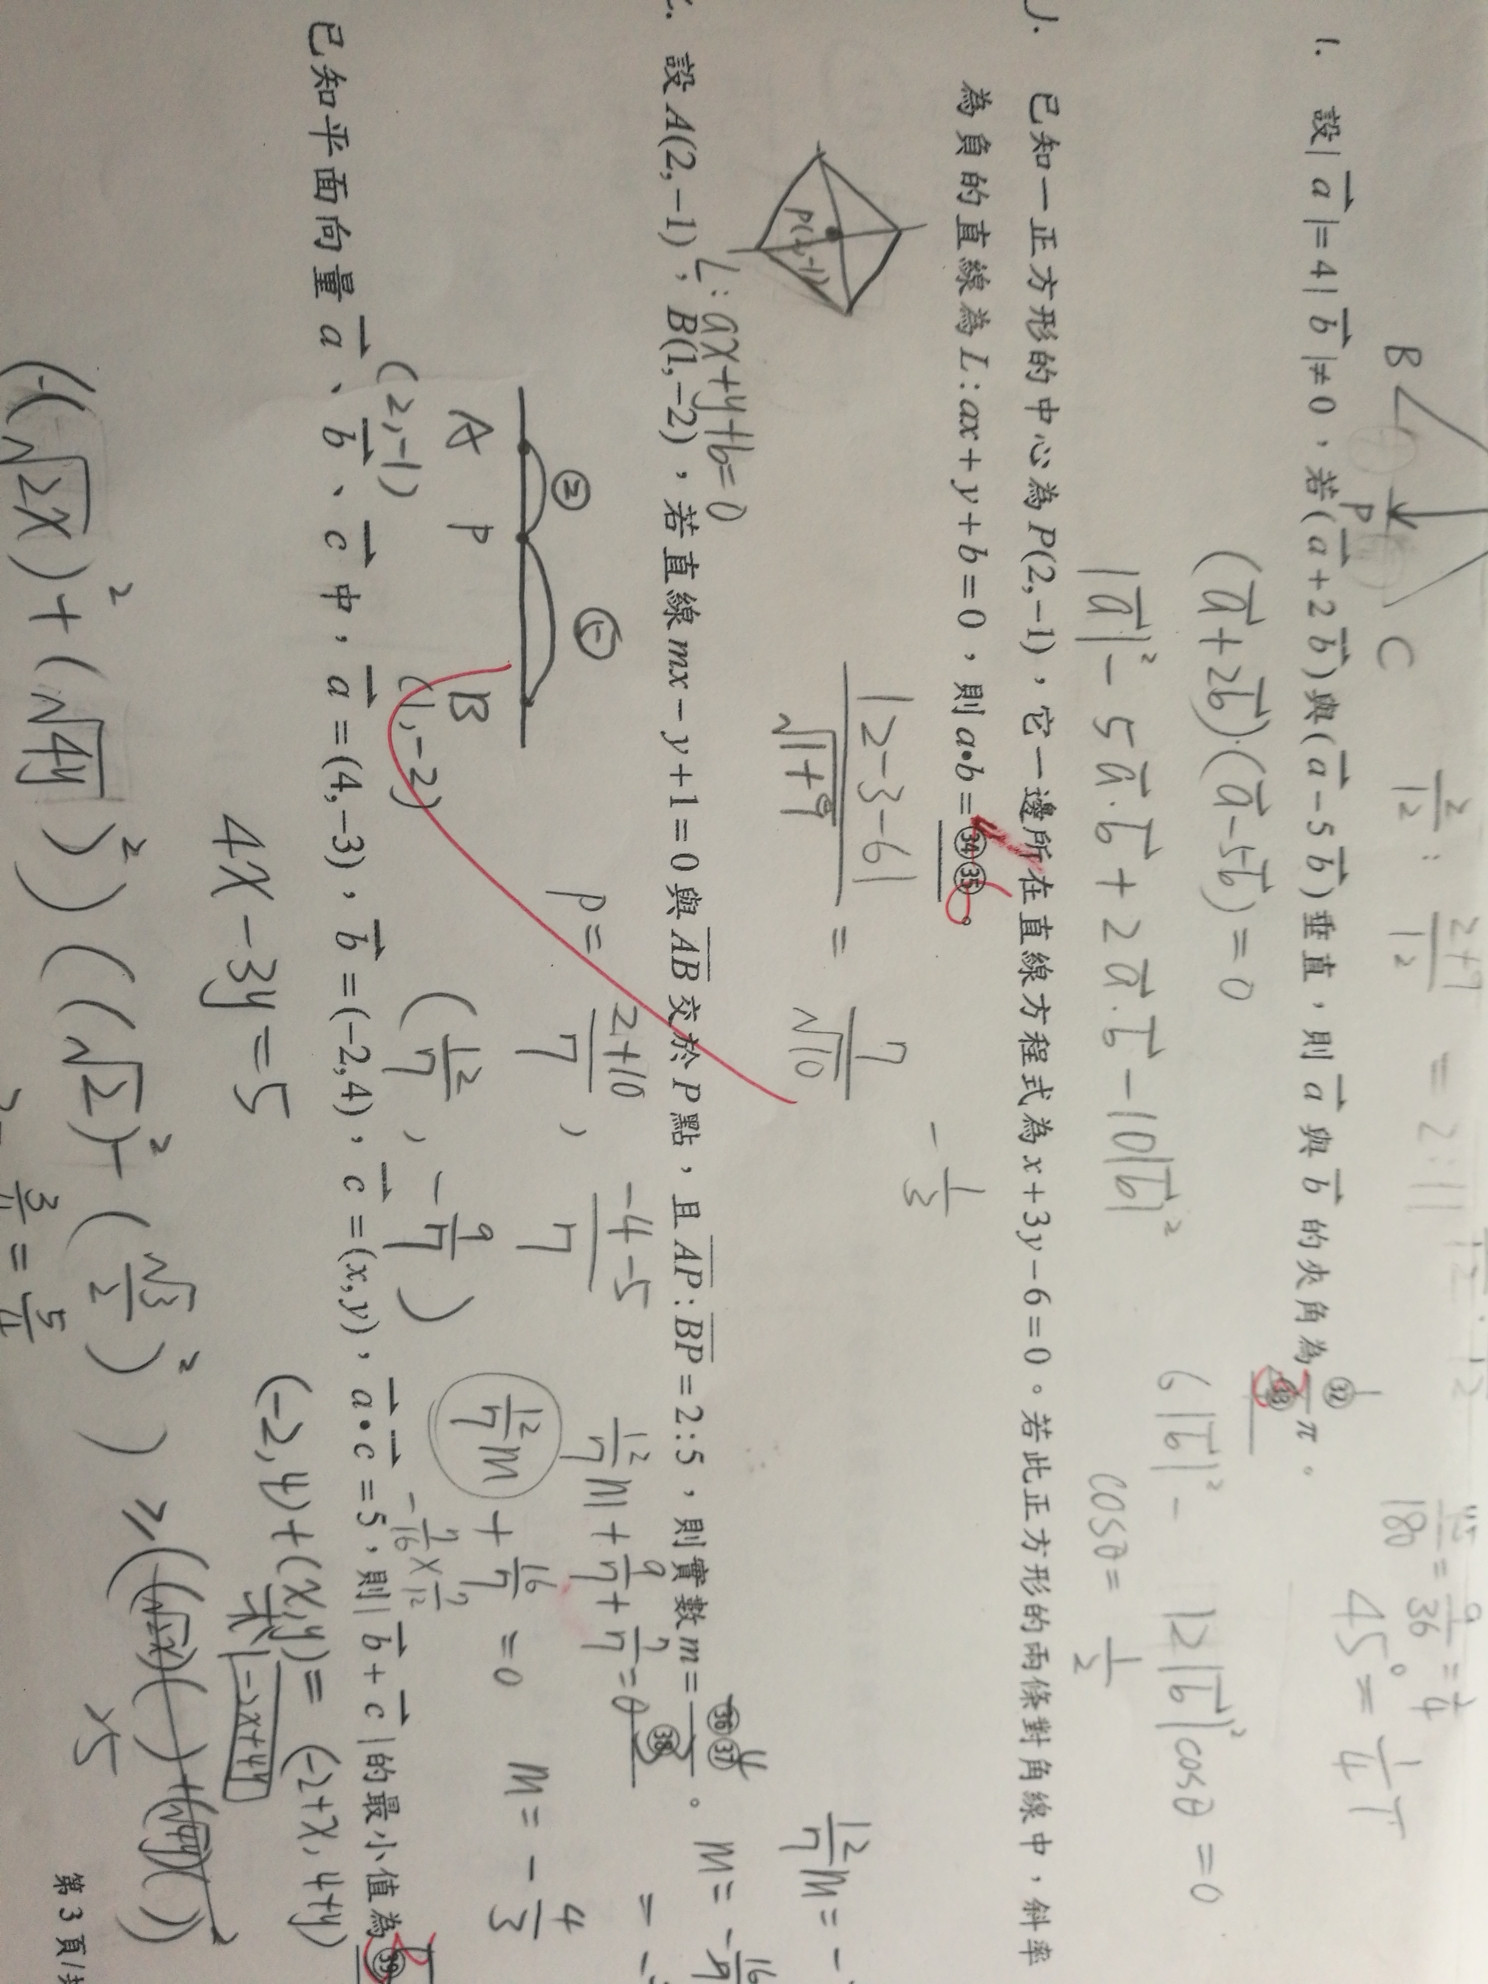 B
P
C
2/12 : 2+9/12 = 2:11
1. 設|a⃗|=4|b⃗|≠0，若(a⃗+2b⃗)與(a⃗-5b⃗)垂直，則a⃗與b⃗的夾角為㉜/㉝π。
(a⃗+2b⃗)·(a⃗-5b⃗)=0
|a⃗|²-5a⃗·b⃗+2a⃗·b⃗-10|b⃗|²
6|b⃗|²- 12|b⃗|²cosθ=0
cosθ= 1/2
45/180=9/36=1/4
45°=1/4π
已知一正方形的中心為P(2,-1)，它一邊所在直線方程式為x+3y-6=0。若此正方形的兩條對角線中，斜率
為負的直線為L:ax+y+b=0，則a•b=㉞㉟。
P(2,-1)
L:ax+y+b=0
|2-3-6|/√1+9 = 7/√10
-1/3
設A(2,-1)，B(1,-2)，若直線mx-y+1=0與AB交於P點，且AP:BP=2:5，則實數m=㊱㊲/㊳。
② ⑤
A P B
(2,-1) (1,-2)
P= 2+10/7 , -4-5/7
(12/7 , -9/7)
12/7m+9/7+7/7=0
12/7m+16/7=0 m=-4/3
12/7m=-
m=-16/7
已知平面向量a⃗、b⃗、c⃗中，a⃗=(4,-3)，b⃗=(-2,4)，c⃗=(x,y)，a⃗•c⃗=5，則|b⃗+c⃗|的最小值為㊴
4x-3y=5
(-2,4)+(x,y)=(-2+x,4+y)
求|-2x+4y|
(-(√2x)²+(√4y)²)((√2)²-(√3/2)²)≥
x5
3/4=5/4
第3頁/共